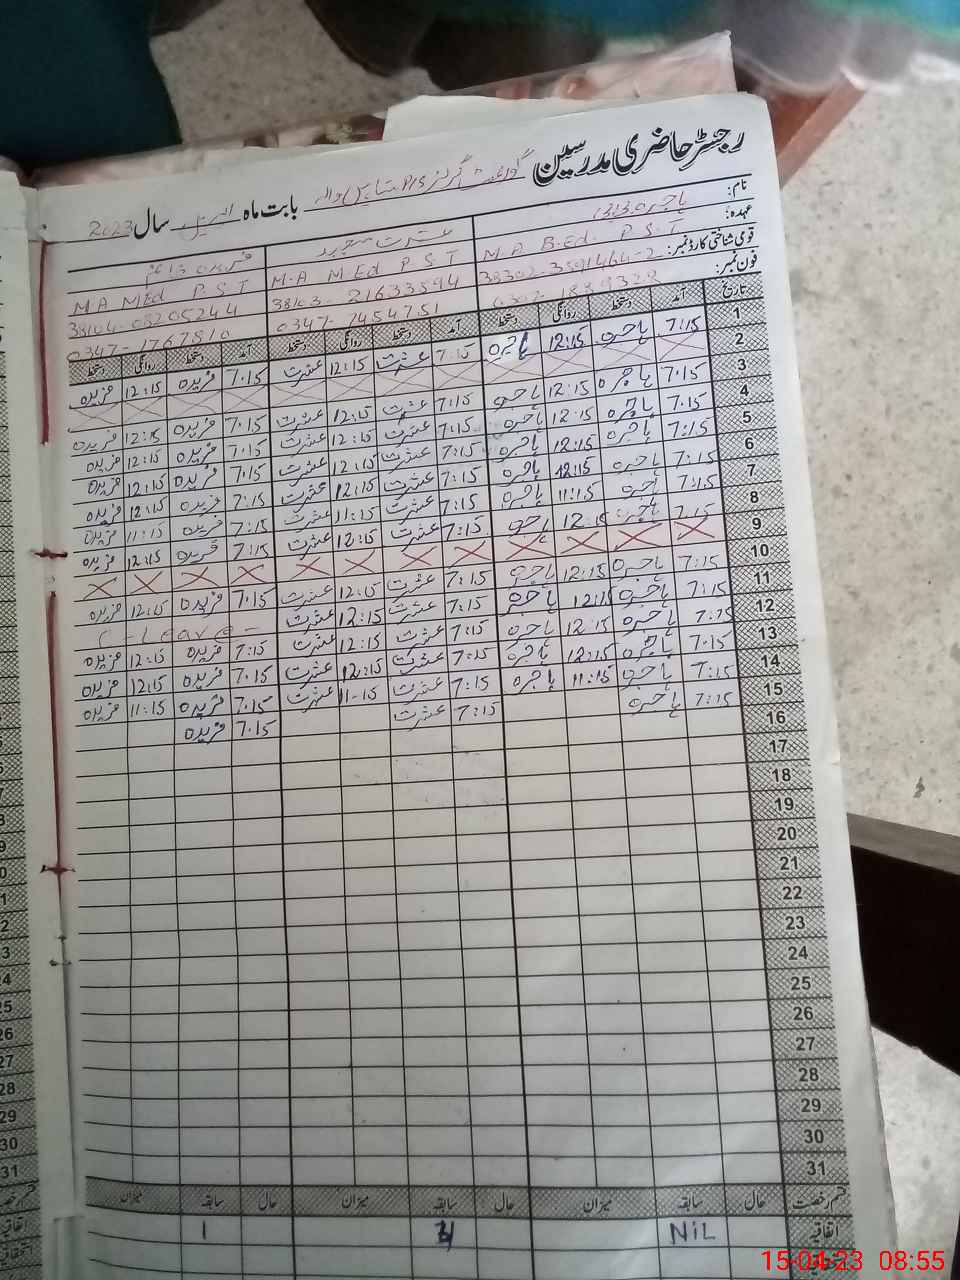 رجسٹر حاضری مدرسین گورنمنٹ گرلز P/S بابت ماہ اپریل سال 2023
نام: ہاجرہ عشرت مجید
عہدہ: M.A B.Ed. P.S.T M.A M.Ed P.S.T M.A M.Ed P.S.T
قومی شناختی کارڈ نمبر: 38302-3591464-2 38103-21633594 38104-08205244
فون نمبر: 0302-1889328 0347-7454751 0347-1767810
تاریخ آمد دستخط روانگی دستخط آمد دستخط روانگی دستخط آمد دستخط روانگی دستخط
1 7:15 ہاجرہ 12:15 ہاجرہ 7:15 عشرت 12:15 عشرت 7.15 فریدہ 12:15 فریدہ
2
3 7.15 ہاجرہ 12:15 ہاجرہ 7:15 عشرت 12:15 عشرت 7.15 فریدہ 12:15 فریدہ
4 7.15 ہاجرہ 12:15 ہاجرہ 7:15 عشرت 12:15 عشرت 7.15 فریدہ 12:15 فریدہ
5 7:15 ہاجرہ 12:15 ہاجرہ 7:15 عشرت 12:15 عشرت 7.15 فریدہ 12:15 فریدہ
6 7:15 ہاجرہ 12:15 ہاجرہ 7:15 عشرت 12:15 عشرت 7:15 فریدہ 12:15 فریدہ
7 7:15 ہاجرہ 11:15 ہاجرہ 7:15 عشرت 11:15 عشرت 7:15 فریدہ 11:15 فریدہ
8 7.15 ہاجرہ 12:15 ہاجرہ 7:15 عشرت 12:15 عشرت 7:15 فریدہ 12:15 فریدہ
9
10 7:15 ہاجرہ 12:15 ہاجرہ 7:15 عشرت 12:15 عشرت 7.15 فریدہ 12:15 فریدہ
11 7:15 ہاجرہ 12:15 ہاجرہ 7:15 عشرت 12:15 عشرت C-Leave-
12 7:15 ہاجرہ 12:15 ہاجرہ 7:15 عشرت 12:15 عشرت 7:15 فریدہ 12:15 فریدہ
13 7:15 ہاجرہ 12:15 ہاجرہ 7:15 عشرت 12:15 عشرت 7.15 فریدہ 12:15 فریدہ
14 7:15 ہاجرہ 11:15 ہاجرہ 7:15 عشرت 11-15 عشرت 7.15 فریدہ 11:15 فریدہ
15 7:15 ہاجرہ 7:15 عشرت 7.15 فریدہ
16
17
18
19
20
21
22
23
24
25
26
27
28
29
30
31
قسم رخصت حال سابقہ میزان حال سابقہ میزان حال سابقہ میزان
اتفاقیہ NiL 1
15-04-23 08:55